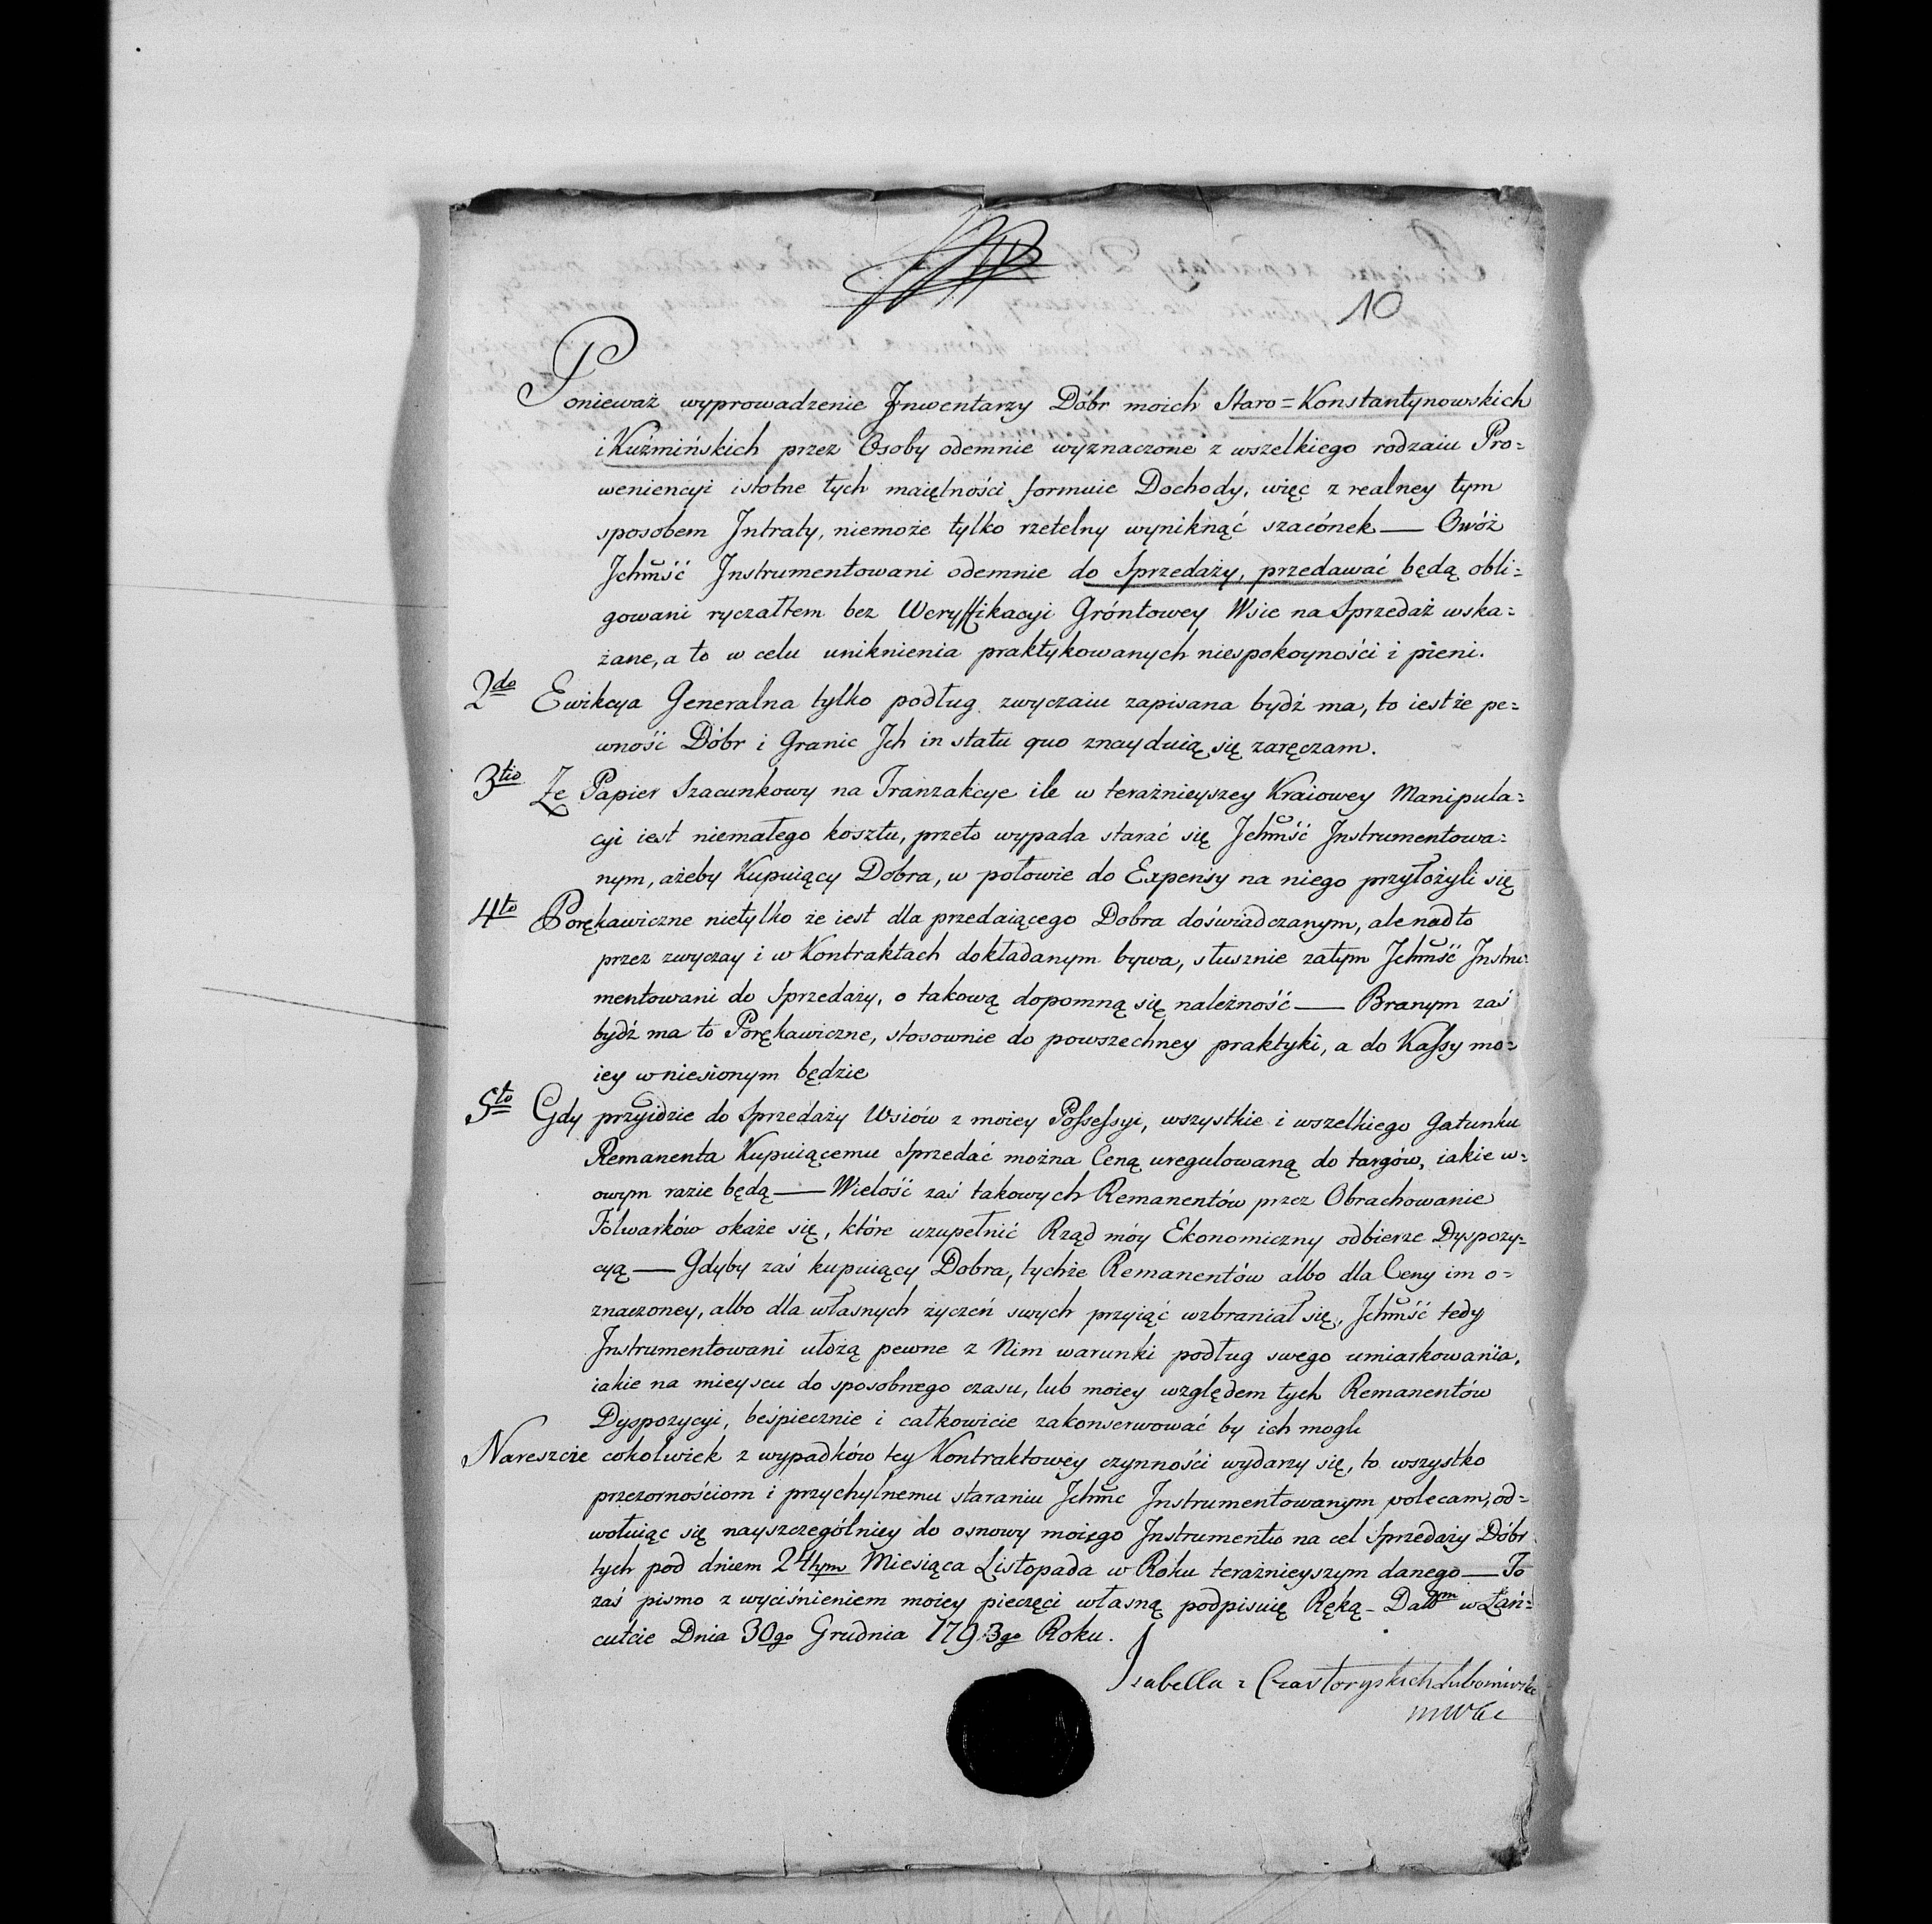 10
Ponieważ wyprowadzenie Jnwentarzy Dóbr moich Staro=Konstantynowskich
i Kuźmińskich przez Osoby odemnie wyznaczone z wszelkiego rodzaiu Pro=
weniencyi istotne tych maiętności formuie Dochody, więc z realney tym
sposobem Jntraty, niemoże tylko rzetelny wyniknąć szacónek — Owóż
Jchmść Jnstrumentowani odemnie do Sprzedaży, przedawać będą obli=
gowani ryczałtem bez Weryffikacyi Gróntowey Wsie na Sprzedaż wska=
żane, a to w celu uniknienia praktykowanych niespokoyności i pieni.
2do Ewikcya Generalna tylko podług zwyczaiu zapisana bydź ma, to iest że pe=
wność Dóbr i Granic Jch in statu quo znayduią się zaręczam.
3tio Że Papier Szacunkowy na Tranzakcye ile w teraźnieyszey Kraiowey Manipula=
cyi iest niemałego kosztu, przeto wypada starać się Jchmść Jnstrumentowa=
nym, ażeby Kupuiący Dobra, w połowie do Expensy na niego przyłożyli się
4to Porękawiczne nietylko że iest dla przedaiącego Dobra doświadczanym, ale nadto
przez zwyczay i w Kontraktach dokładanym bywa, słusznie zatym Jchmść Jnstru=
mentowani do Sprzedaży, o takową dopomną się należność — Branym zaś
bydź ma to Porękawiczne, stosownie do powszechney praktyki, a do Kassy mo=
iey wniesionym będzie
5to Gdy przyidzie do Sprzedaży Wsiów z moiey Possessyi, wszystkie i wszelkiego Gatunku
Remanenta Kupuiącemu Sprzedać można Ceną uregulowaną do targów, iakie w=
owym razie będą — Wielość zaś takowych Remanentów przez Obrachowanie
Folwarków okaże się, które uzupełnić Rząd móy Ekonomiczny odbierze Dyspozy=
cyą — Gdyby zaś kupuiący Dobra, tychże Remanentów albo dla Ceny im o=
znaczoney, albo dla własnych życzeń swych przyiąć wzbraniał się, Jchmść tedy
Jnstrumentowani ułożą pewne z Nim warunki podług swego umiarkowania,
iakie na mieyscu do sposobnego czasu, lub moiey względem tych Remanentów
Dyspozycyi, beśpiecznie i całkowicie zakonserwować by ich mogli
Nareszcie cokolwiek z wypadków tey Kontraktowey czynności wydarzy się, to wszystko
przezornościom i przychylnemu staraniu Jchmc Jnstrumentowanym polecam, od=
wołuiąc się nayszczególniey do osnowy moiego Jnstrumentu na cel Sprzedaży Dóbr
tych pod dniem 24tym Miesiąca Listopada w Roku teraźnieyszym danego — To
zaś pismo z wyciśnieniem moiey pieczęci własną podpisuię Ręką – Datt w Łań=
cutcie Dnia 30go Grudnia 1793go Roku.
Isabella z Czartoryskich Lubomirska